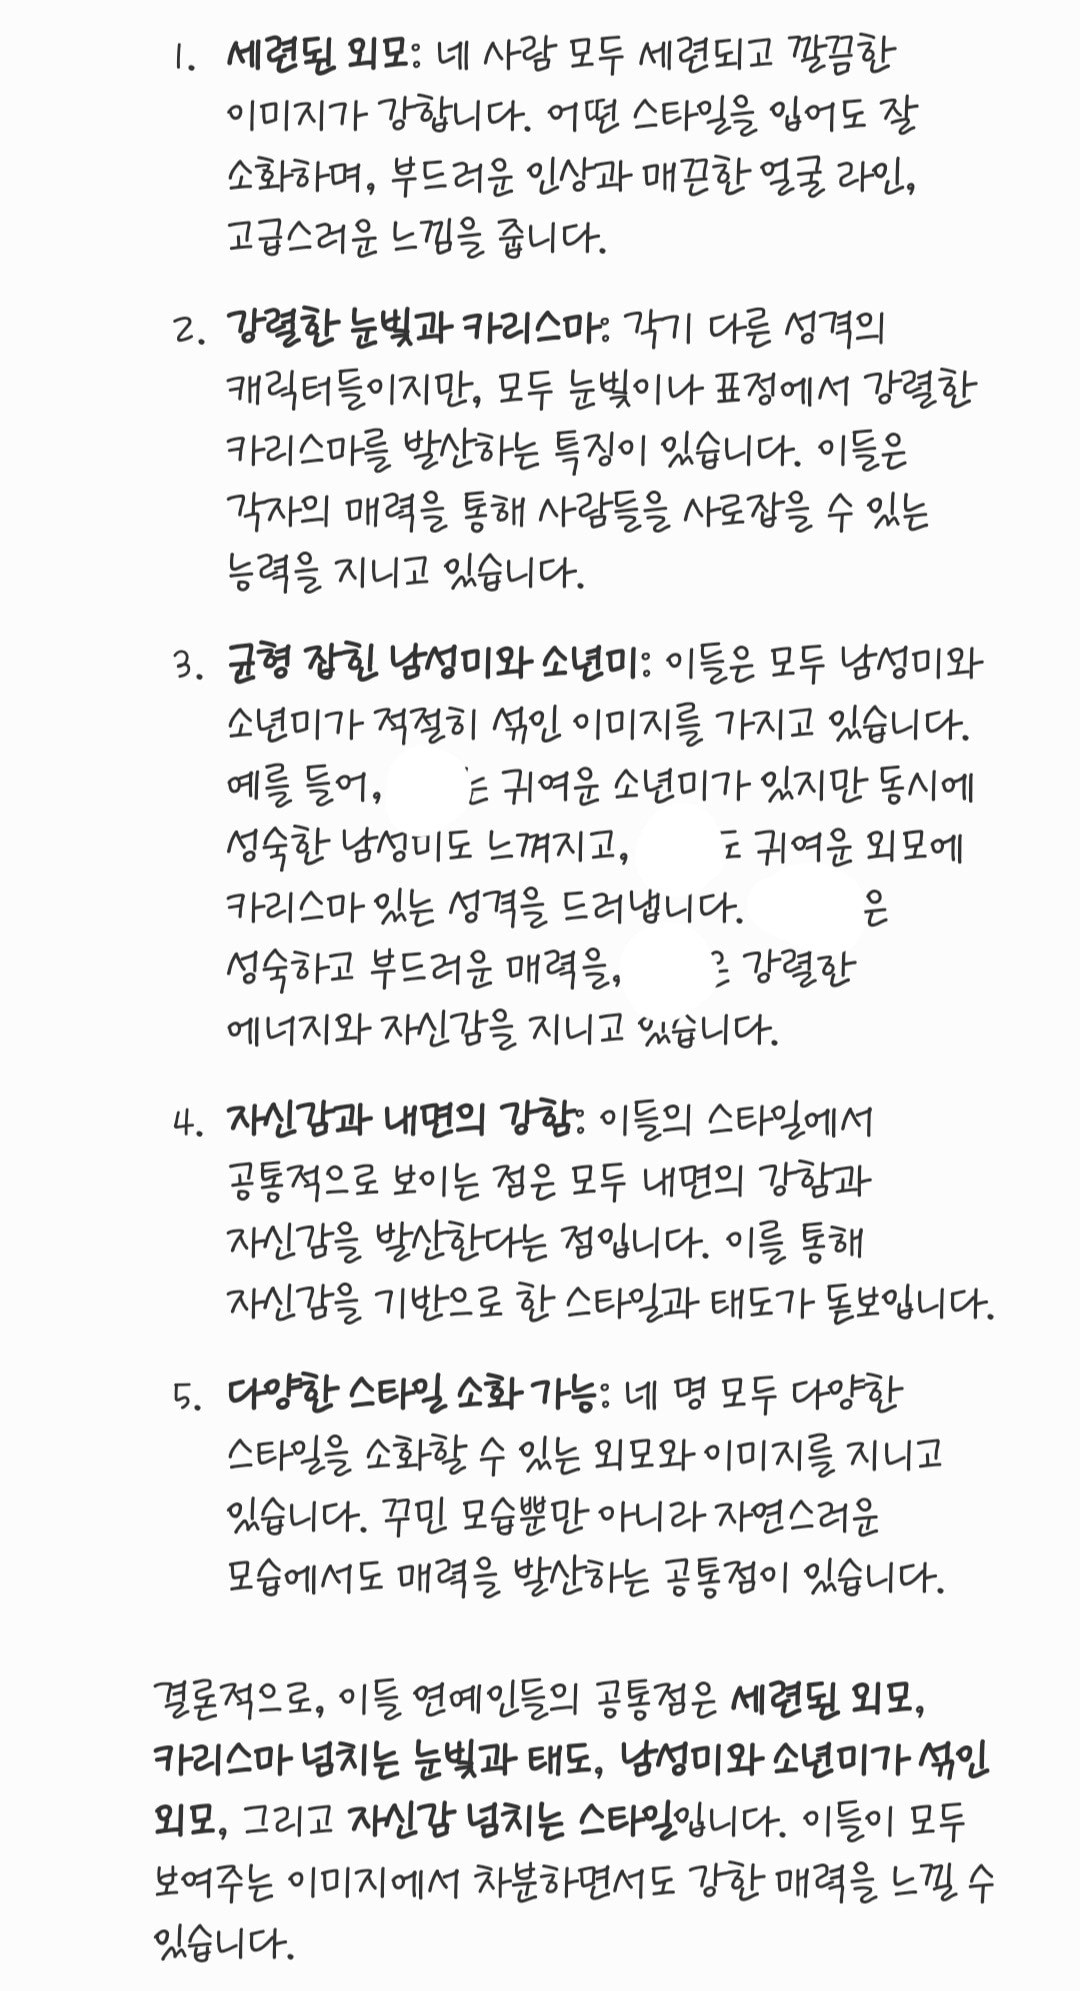 1. 세련된 외모: 네 사람 모두 세련되고 깔끔한
이미지가 강합니다. 어떤 스타일을 입어도 잘
소화하며, 부드러운 인상과 매끈한 얼굴 라인,
고급스러운 느낌을 줍니다.
2. 강렬한 눈빛과 카리스마: 각기 다른 성격의
캐릭터들이지만, 모두 눈빛이나 표정에서 강렬한
카리스마를 발산하는 특징이 있습니다. 이들은
각자의 매력을 통해 사람들을 사로잡을 수 있는
능력을 지니고 있습니다.
3. 균형 잡힌 남성미와 소년미: 이들은 모두 남성미와
소년미가 적절히 섞인 이미지를 가지고 있습니다.
예를 들어, 귀여운 소년미가 있지만 동시에
성숙한 남성미도 느껴지고, 귀여운 외모에
카리스마 있는 성격을 드러냅니다. 은
성숙하고 부드러운 매력을, 강렬한
에너지와 자신감을 지니고 있습니다.
4. 자신감과 내면의 강함: 이들의 스타일에서
공통적으로 보이는 점은 모두 내면의 강함과
자신감을 발산한다는 점입니다. 이를 통해
자신감을 기반으로 한 스타일과 태도가 돋보입니다.
5. 다양한 스타일 소화 가능: 네 명 모두 다양한
스타일을 소화할 수 있는 외모와 이미지를 지니고
있습니다. 꾸민 모습뿐만 아니라 자연스러운
모습에서도 매력을 발산하는 공통점이 있습니다.
결론적으로, 이들 연예인들의 공통점은 세련된 외모,
카리스마 넘치는 눈빛과 태도, 남성미와 소년미가 섞인
외모, 그리고 자신감 넘치는 스타일입니다. 이들이 모두
보여주는 이미지에서 차분하면서도 강한 매력을 느낄 수
있습니다.